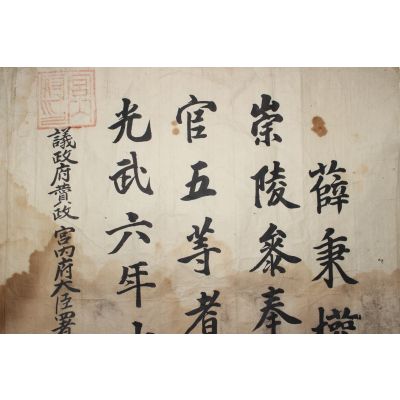 薛秉
崇陵叅奉
官五等者
光武六年
議政府賛政 宮內府大臣署